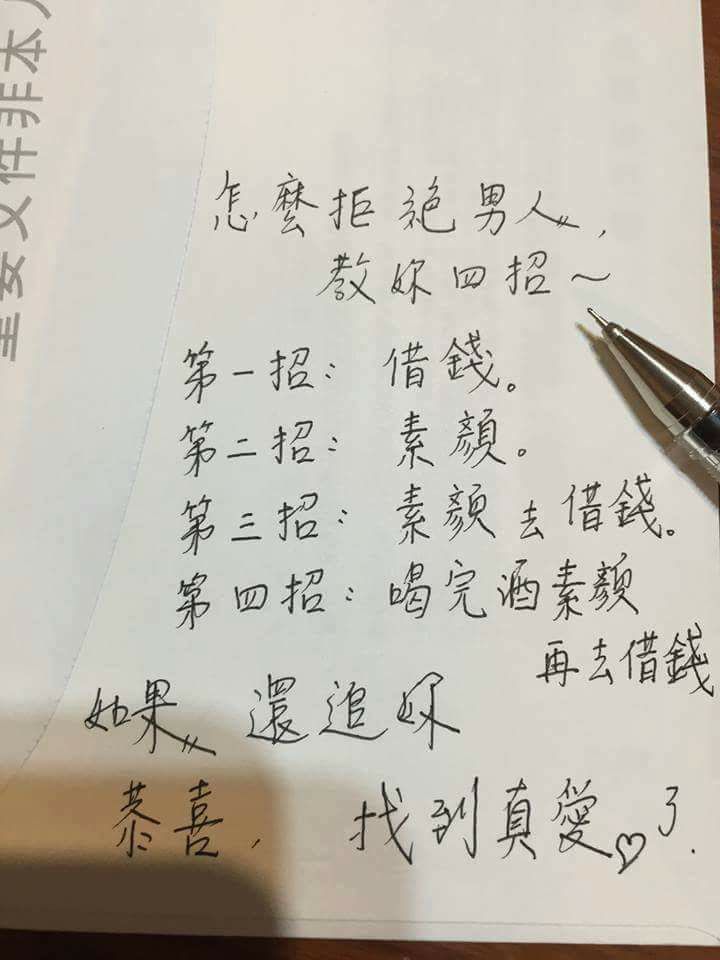 重要文件非本人
怎麼拒絕男人,
教妳四招~
第一招: 借錢。
第二招: 素顏。
第三招: 素顏去借錢。
第四招: 喝完酒素顏
再去借錢
如果 還追妳
恭喜, 找到真愛♡了.